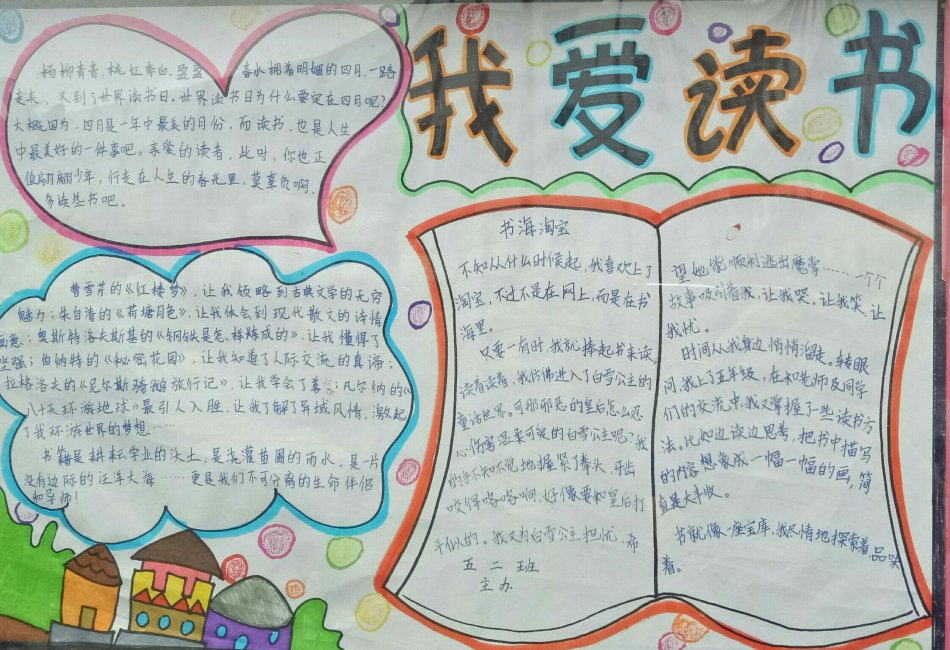 我爱读书
杨柳青青，桃红李白，盈盈春水拥着明媚的四月，一路
走来，又到了世界读书日。世界读书日为什么要定在四月呢？
大概因为，四月是一年中最美的月份，而读书，也是人生
中最美好的一件事吧。亲爱的读者，此时，你也正
值翩翩少年，行走在人生的春光里，莫辜负啊，
多读些书吧。
曹雪芹的《红楼梦》，让我领略到古典文学的无穷
魅力；朱自清的《荷塘月色》，让我体会到现代散文的诗情
画意；奥斯特洛夫斯基的《钢铁是怎样炼成的》，让我懂得了
坚强；伯纳特的《秘密花园》，让我知道了人际交流的真谛；
拉格洛夫的《尼尔斯骑鹅旅行记》，让我学会了善；凡尔纳的《
八十天环游地球》最引人入胜，让我了解了异域风情，激起
了我环游世界的梦想……
书籍是耕耘学业的沃土，是浇灌苗圃的雨水，是一片
没有边际的汪洋大海……更是我们不可分离的生命伴侣
和导师！
书海淘宝
不知从什么时候起，我喜欢上了
淘宝，不过不是在网上，而是在书
海里。
只要一有时，我就捧起书来读，
读着读着，我仿佛进入了白雪公主的
童话世界。可那邪恶的皇后怎么忍
心伤害温柔可爱的白雪公主呢？我
的手不知不觉地握紧了拳头，牙齿
咬得咯咯响，好像要和皇后打
斗似的。我又为白雪公主担忧，希
五二班
主办
望她能顺利逃出魔掌……一个个
故事吸引着我，让我哭，让我笑，让
我忧。
时间从我身边悄悄溜走，转眼
间，我上了五年级，在和老师及同学
们的交流中，我又掌握了一些读书方
法。比如边读边思考，把书中描写
的内容想象成一幅一幅的画，简
直是大丰收。
书就像一座宝库，我尽情地探索着，品味
着。